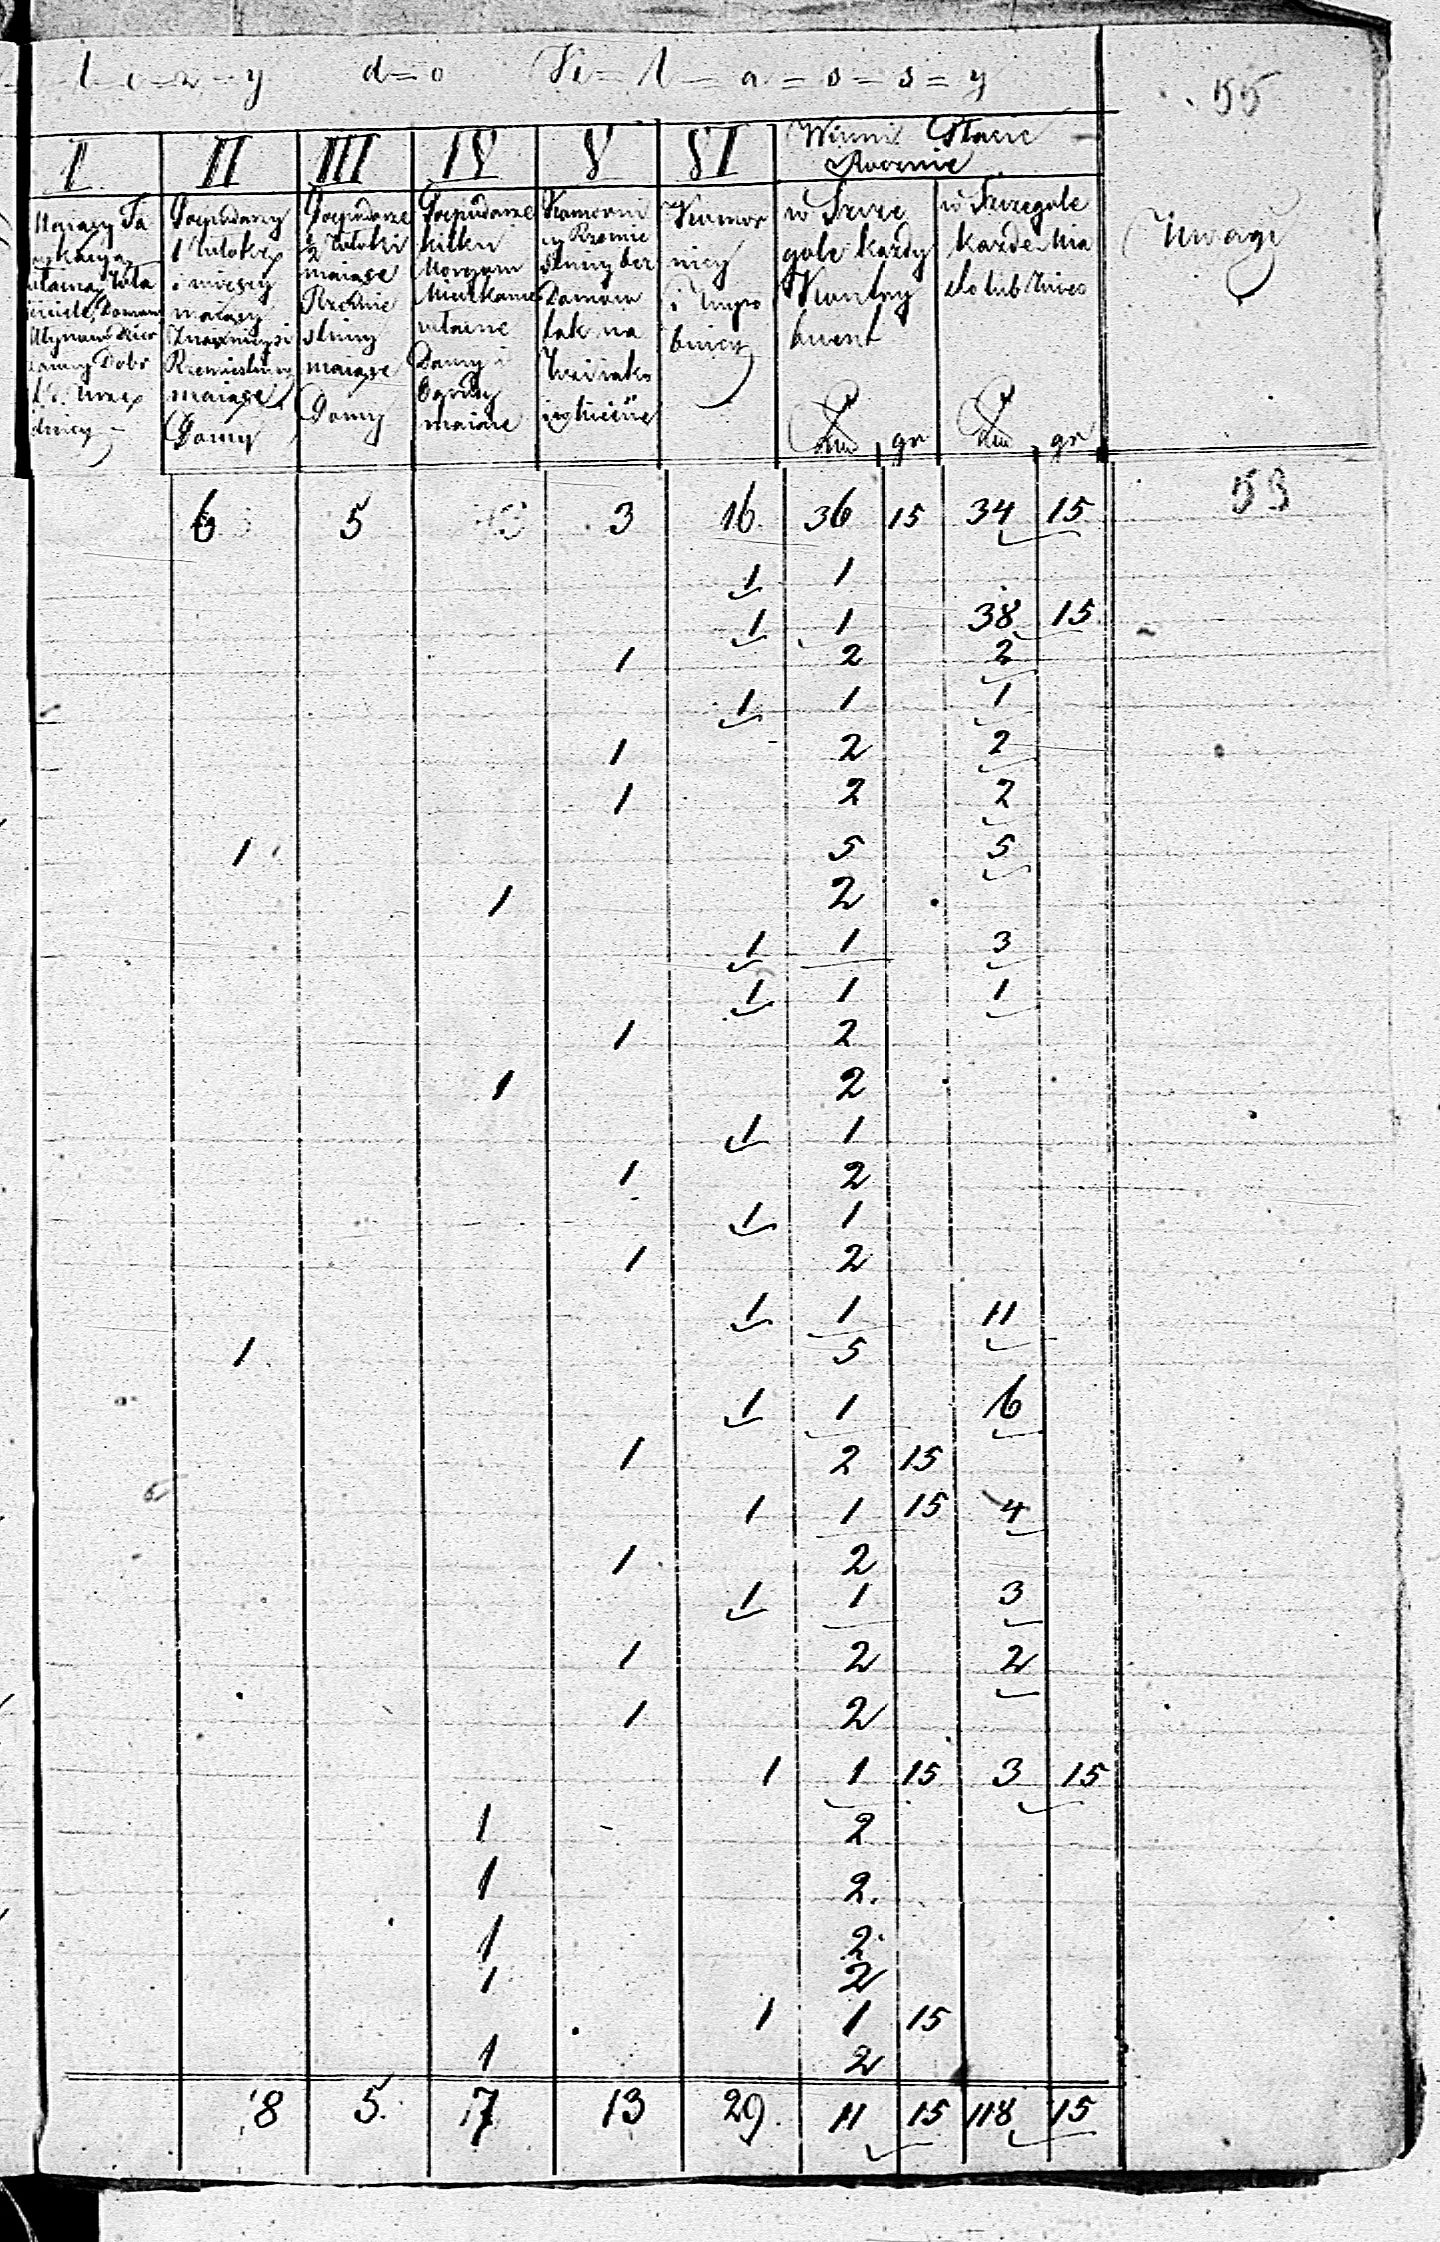 l=e=z=y d=o K=l=a=s=s=y
55
I II III IV V VI Winni Płacić
Rocznie
Gospodarzy
1 Włokę
i więcey
maiący
Znacznieysi
Rzemieslnicy
maiące
Domy
Gospodarze
½ Włoki
maiące
Rzemie
slnicy
maiące
Domy
Gospodarze
kilku
Morgam
Mieszkanie
własne
Domy i
Ogrody
maiące
Komorni
cy Rzemie
slnicy bez
Domow
tak na
Komor
nicy
i Wyro
bnicy
w Szcze
gole każdy
Kontry
buent
gr
w Szczegole
każde Mia
sto lub Wieś
gr
Uwagi
6 5 3 16 36 15 34 15 53
1 1
1 1 38 15
1 2 2
1 1 1
1 2 2
1 2 2
1 5 5
1 2
1 1 3
1 1 1
1 2
1 2
1 1
1 2
1 1
1 2
1 1 11
1 5
1 1 6
1 2 15
1 1 15 4
1 2
1 1 3
1 2 2
1 2
1 1 15 3 15
1 2
1 2.
1 2
1 2
1 1 15
1 2
8 5. 7 13 29. 11 15 118 15